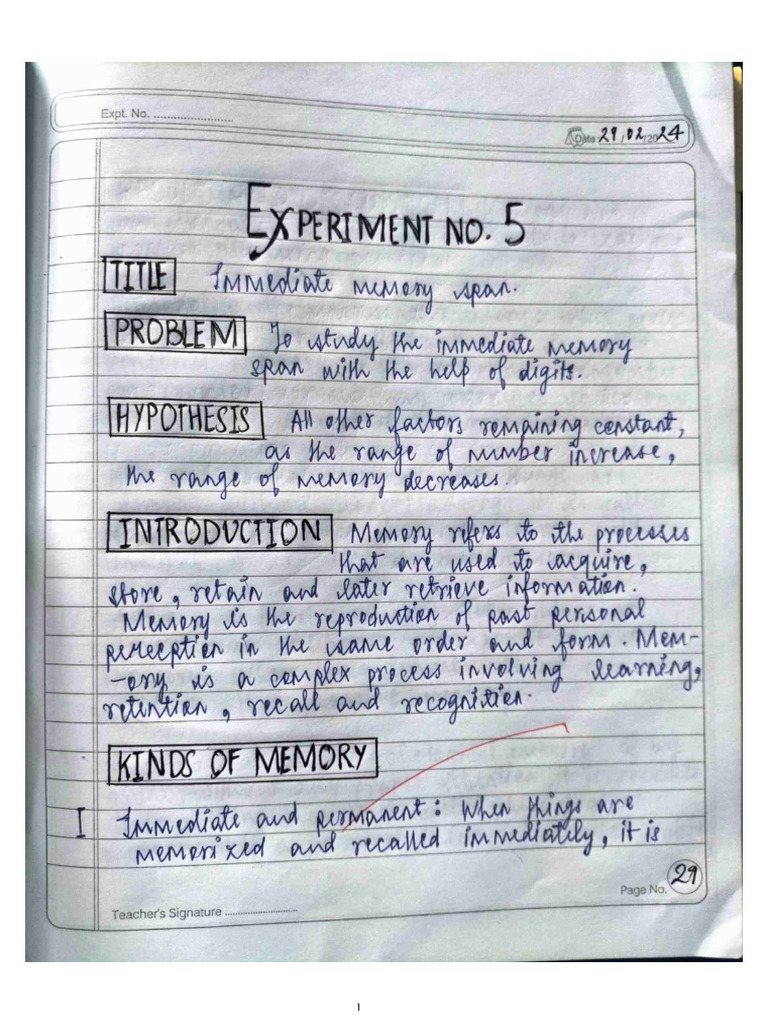 Expt. No. ........................
Date 29/02/2024
EXPERIMENT NO. 5
TITLE Immediate memory span.
PROBLEM To study the immediate memory
span with the help of digits.
HYPOTHESIS All other factors remaining constant,
as the range of number increase,
the range of memory decreases.
INTRODUCTION Memory refers to the processes
that are used to acquire,
store, retain and later retrieve information.
Memory is the reproduction of past personal
perception in the same order and form. Mem-
-ory is a complex process involving learning,
retention, recall and recognition.
KINDS OF MEMORY
I Immediate and permanent: When things are
memorized and recalled immediately, it is
Page No. 29
Teacher's Signature ........................
1